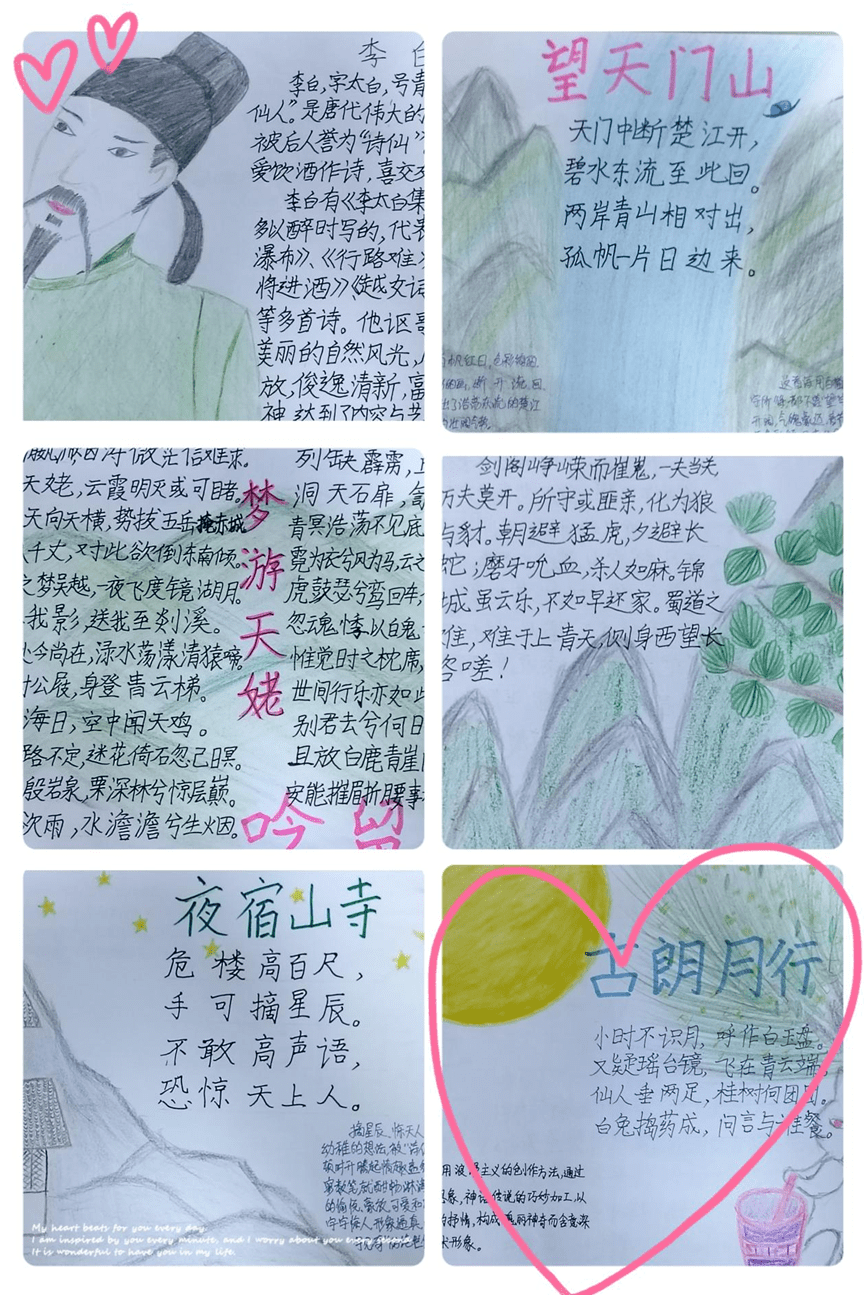 李白
李白,字太白,号青
仙人”。是唐代伟大的
被后人誉为“诗仙”
爱饮酒作诗,喜交
李白有《李太白集
多以醉时写的,代表
瀑布》、《行路难
将进酒》《越女词
等多首诗。他讴歌
美丽的自然风光,
放,俊逸清新,富
神,达到了内容与艺
望天门山
天门中断楚江开,
碧水东流至此回。
两岸青山相对出,
孤帆一片日边来。
梦游天姥
吟留
天姥,云霞明灭或可睹。
天向天横,势拔五岳掩赤城
千丈,对此欲倒东南倾。
之梦吴越,一夜飞度镜湖月。
我影,送我至剡溪。
处今尚在,渌水荡漾清猿啼。
公屐,身登青云梯。
海日,空中闻天鸡。
路不定,迷花倚石忽已暝。
殷岩泉,栗深林兮惊层巅。
欲雨,水澹澹兮生烟。
列缺霹雳,
洞天石扉,
青冥浩荡不见底
霓为衣兮风为马,云之
虎鼓瑟兮鸾回车
忽魂悸以魄
惟觉时之枕席,
世间行乐亦如此
别君去兮何日
且放白鹿青崖
安能摧眉折腰事
剑阁峥嵘而崔嵬,一夫当关
万夫莫开。所守或匪亲,化为狼
与豺。朝避猛虎,夕避长
蛇;磨牙吮血,杀人如麻。锦
城虽云乐,不如早还家。蜀道之
难,难于上青天,侧身西望长
咨嗟!
夜宿山寺
危楼高百尺,
手可摘星辰。
不敢高声语,
恐惊天上人。
摘星辰、惊天人
My heart beats for you every day.
I am inspired by you every minute, and I worry about you every second.
It is wonderful to have you in my life.
古朗月行
小时不识月,呼作白玉盘。
又疑瑶台镜,飞在青云端,
仙人垂两足,桂树何团团。
白兔捣药成,问言与谁餐。
用浪漫主义的创作方法,通过
想象,神话传说的巧妙加工,以
的抒情,构成瑰丽神奇而含意深
术形象。